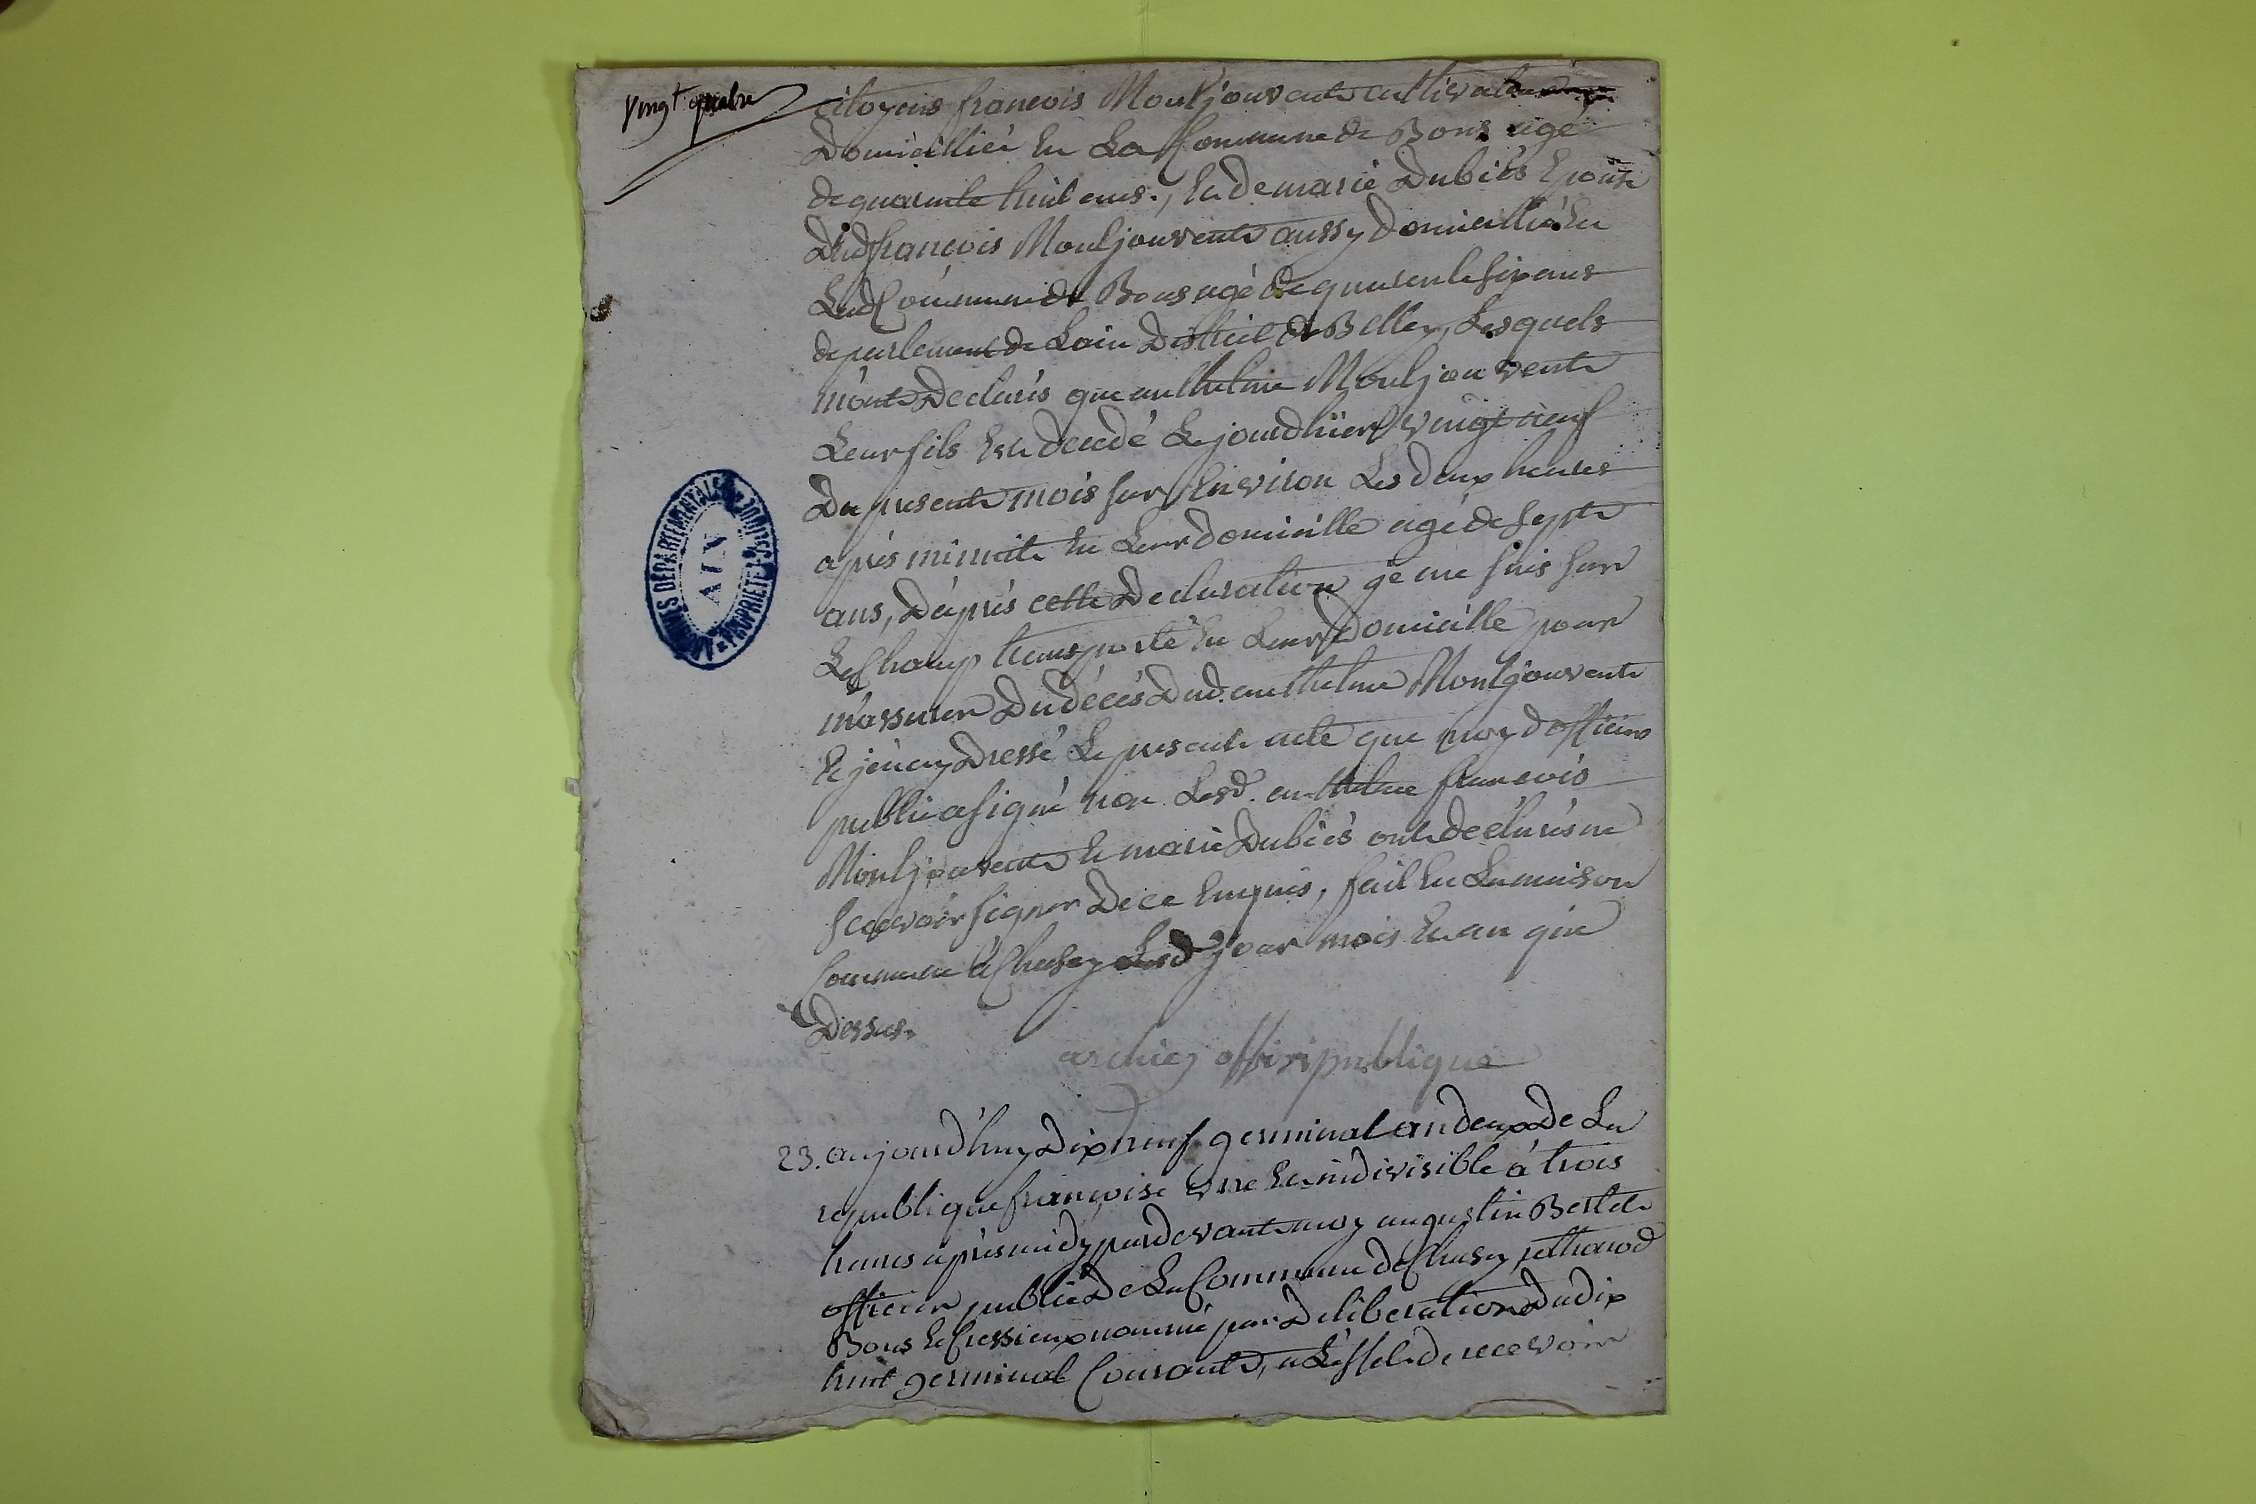 vingt quatre
citoyens francois Montjouvent cultivateur
Domicillié En La Commune de Bons agé
de quarante huit ans, Et de marie Dubiés Epouse
Dud francois Montjouvente aussy Domicillié En
Lad Commune de Bons agé de quarente six ans
departement de Lain District de Belley, Lesquels
m'ont Declarés que anthelme Montjouvente
Leur fils Est decedé Le jourdhier vingt neuf
Du presente mois sur Environ Les deux heures
après minuite En Leur Domicille agé de septe
ans, D'après cette Declaration je me suis sur
Le Champ transporté En Leur Domicille pour
m'assurer Du décés Dud. anthelme Montjouvente
Et j'en ay Dressé Le presente acte que moy d officier
public a signé non Lesd. anthelme francois
Montjouvente Et marie Dubiés ont declarés ne
scavoir signer De ce Enquis, fait En La maison
Commune à Chasey Lesd jour mois Et an que
Dessus.
archiez offisi publique
23. aujourd'huy Dix neuf germinal an deux De La
republique françoise Une Et indivisible à trois
heures après midy pardevante moy augustin Bertet
officier public De La Commune de Chasey, rothonod
Bons Et Cressieux nommé par Deliberation Du dix
huit germinal Courante, à L'effet de recevoir
ARCHIVES DÉPARTEMENTALES
PROPRIÉTÉ PUBLIQUE
AIN